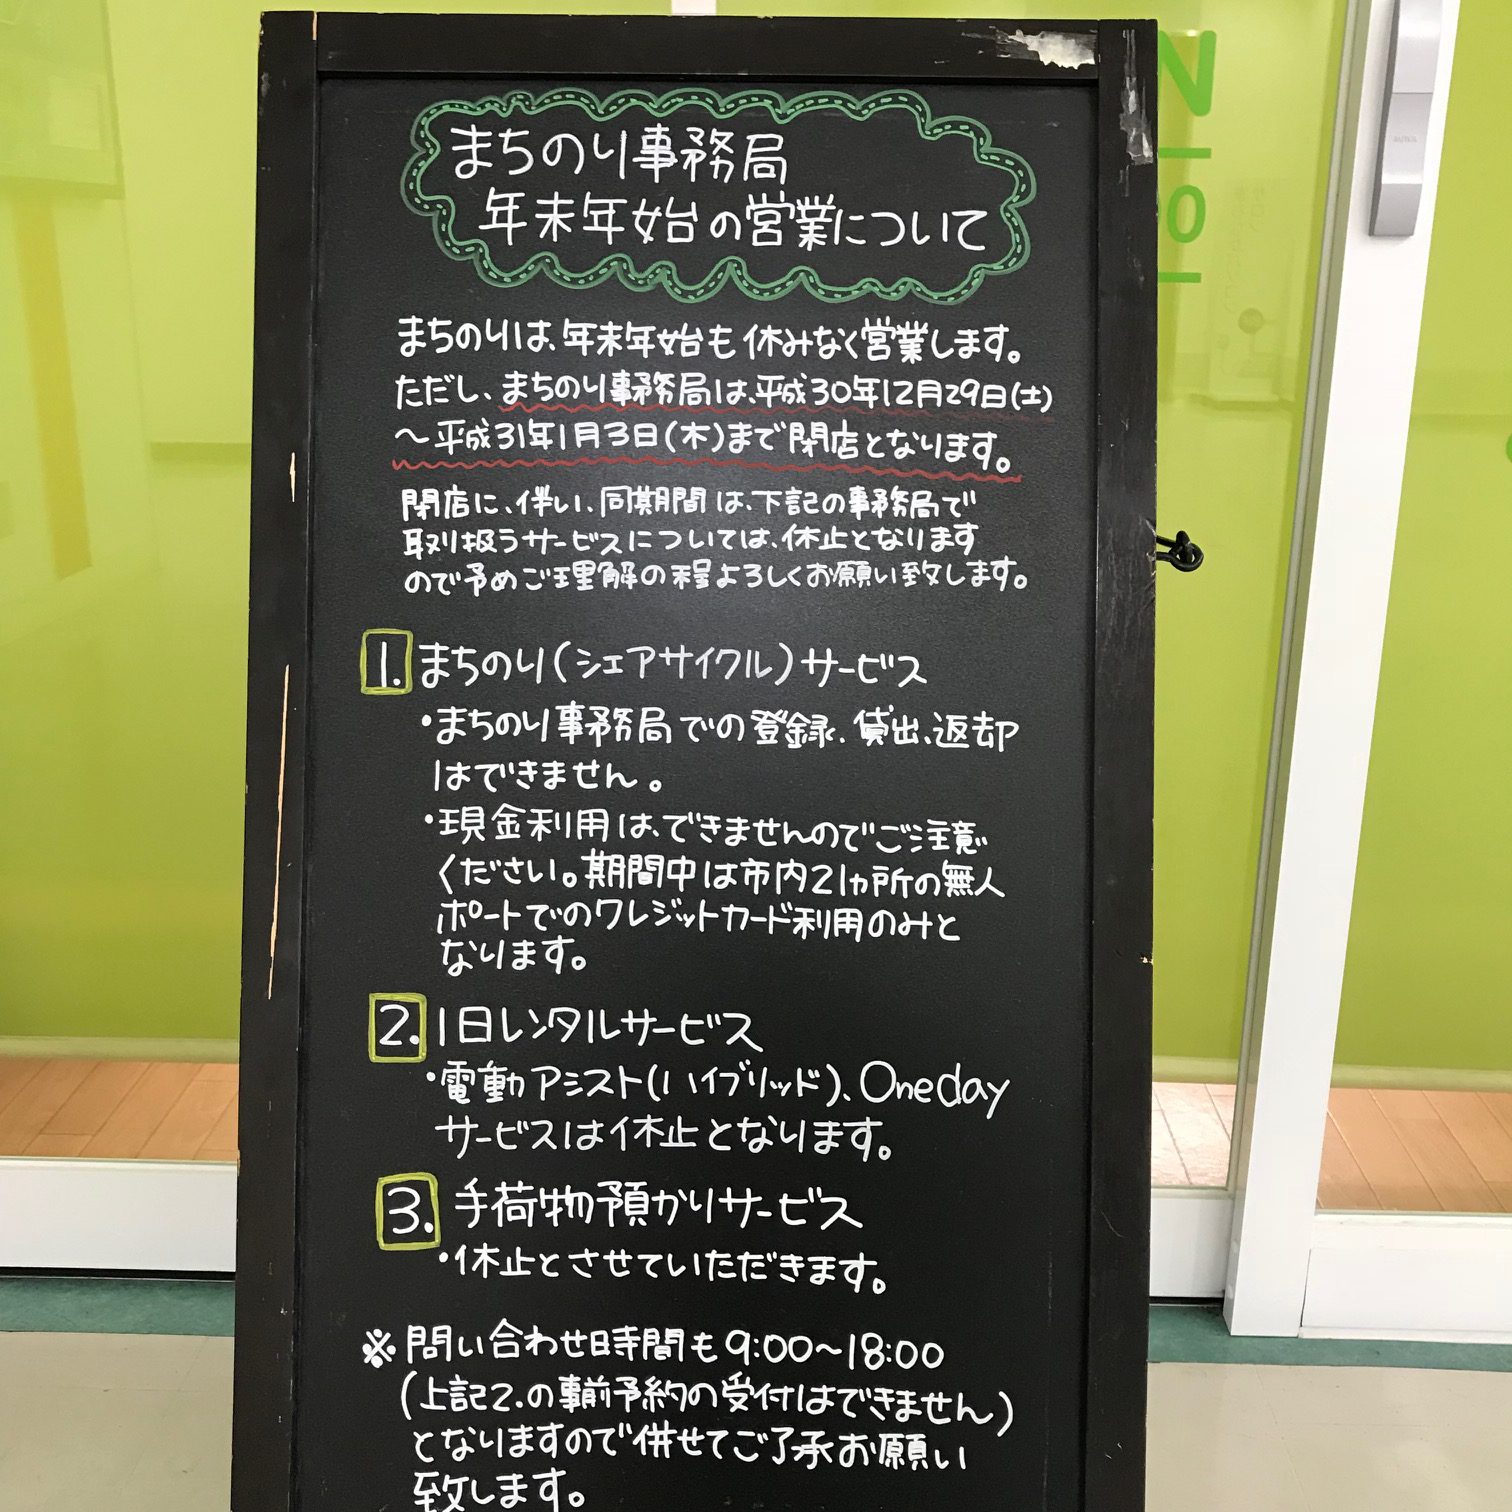 まちのり事務局
年末年始の営業について
まちのりは、年末年始も休みなく営業します。
ただし、まちのり事務局は、平成30年12月29日(土)
～平成31年1月3日(木)まで閉店となります。
閉店に、伴い、同期間は、下記の事務局で
取り扱うサービスについては、休止となります
ので予めご理解の程よろしくお願い致します。
1. まちのり(シェアサイクル)サービス
・まちのり事務局での登録、貸出、返却
はできません。
・現金利用は、できませんのでご注意
ください。期間中は市内21ヵ所の無人
ポートでのクレジットカード利用のみと
なります。
2. 1日レンタルサービス
・電動アシスト(ハイブリッド)、Oneday
サービスは休止となります。
3. 手荷物預かりサービス
・休止とさせていただきます。
※問い合わせ時間も9:00～18:00
(上記2.の事前予約の受付はできません)
となりますので併せてご了承お願い
致します。
N
0